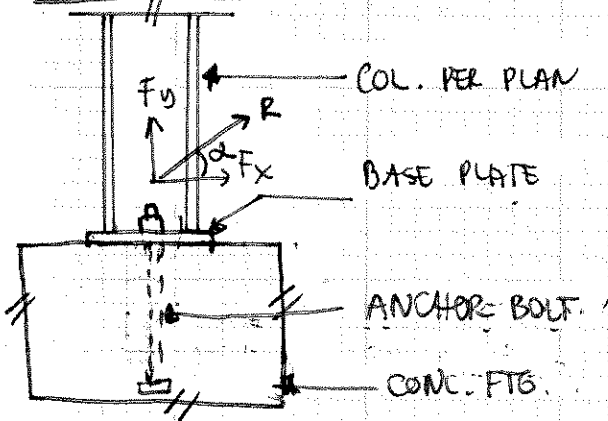 COL. PER PLAN
Fy
R
α
Fx
BASE PLATE
ANCHOR BOLT.
CONC. FTG.